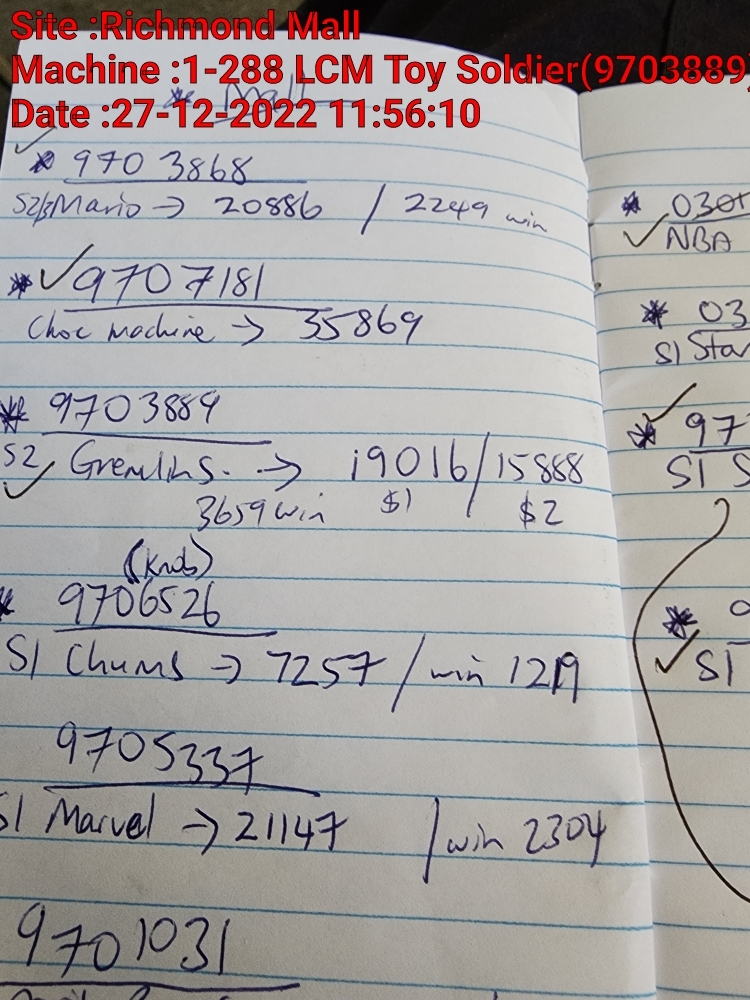 Site :Richmond Mall
Machine :1-288 LCM Toy Soldier(9703889)
Date :27-12-2022 11:56:10
* Mall
* 970 3868
S2/3 Mario → 20886 / 2249 win
* ✓ 9707181
Choc machine → 35869
* 9703889
S2 Gremlins. → 19016 / 15888
✓ 3659 win $1 $2
(Knob)
* 9706526
S1 Chums → 7257 / win 1219
9705337
S1 Marvel → 21147 / win 2304
9701031
* 030
✓ NBA
* 03
S1 Star
✓
* 97
S1 S
* 9
✓ S1